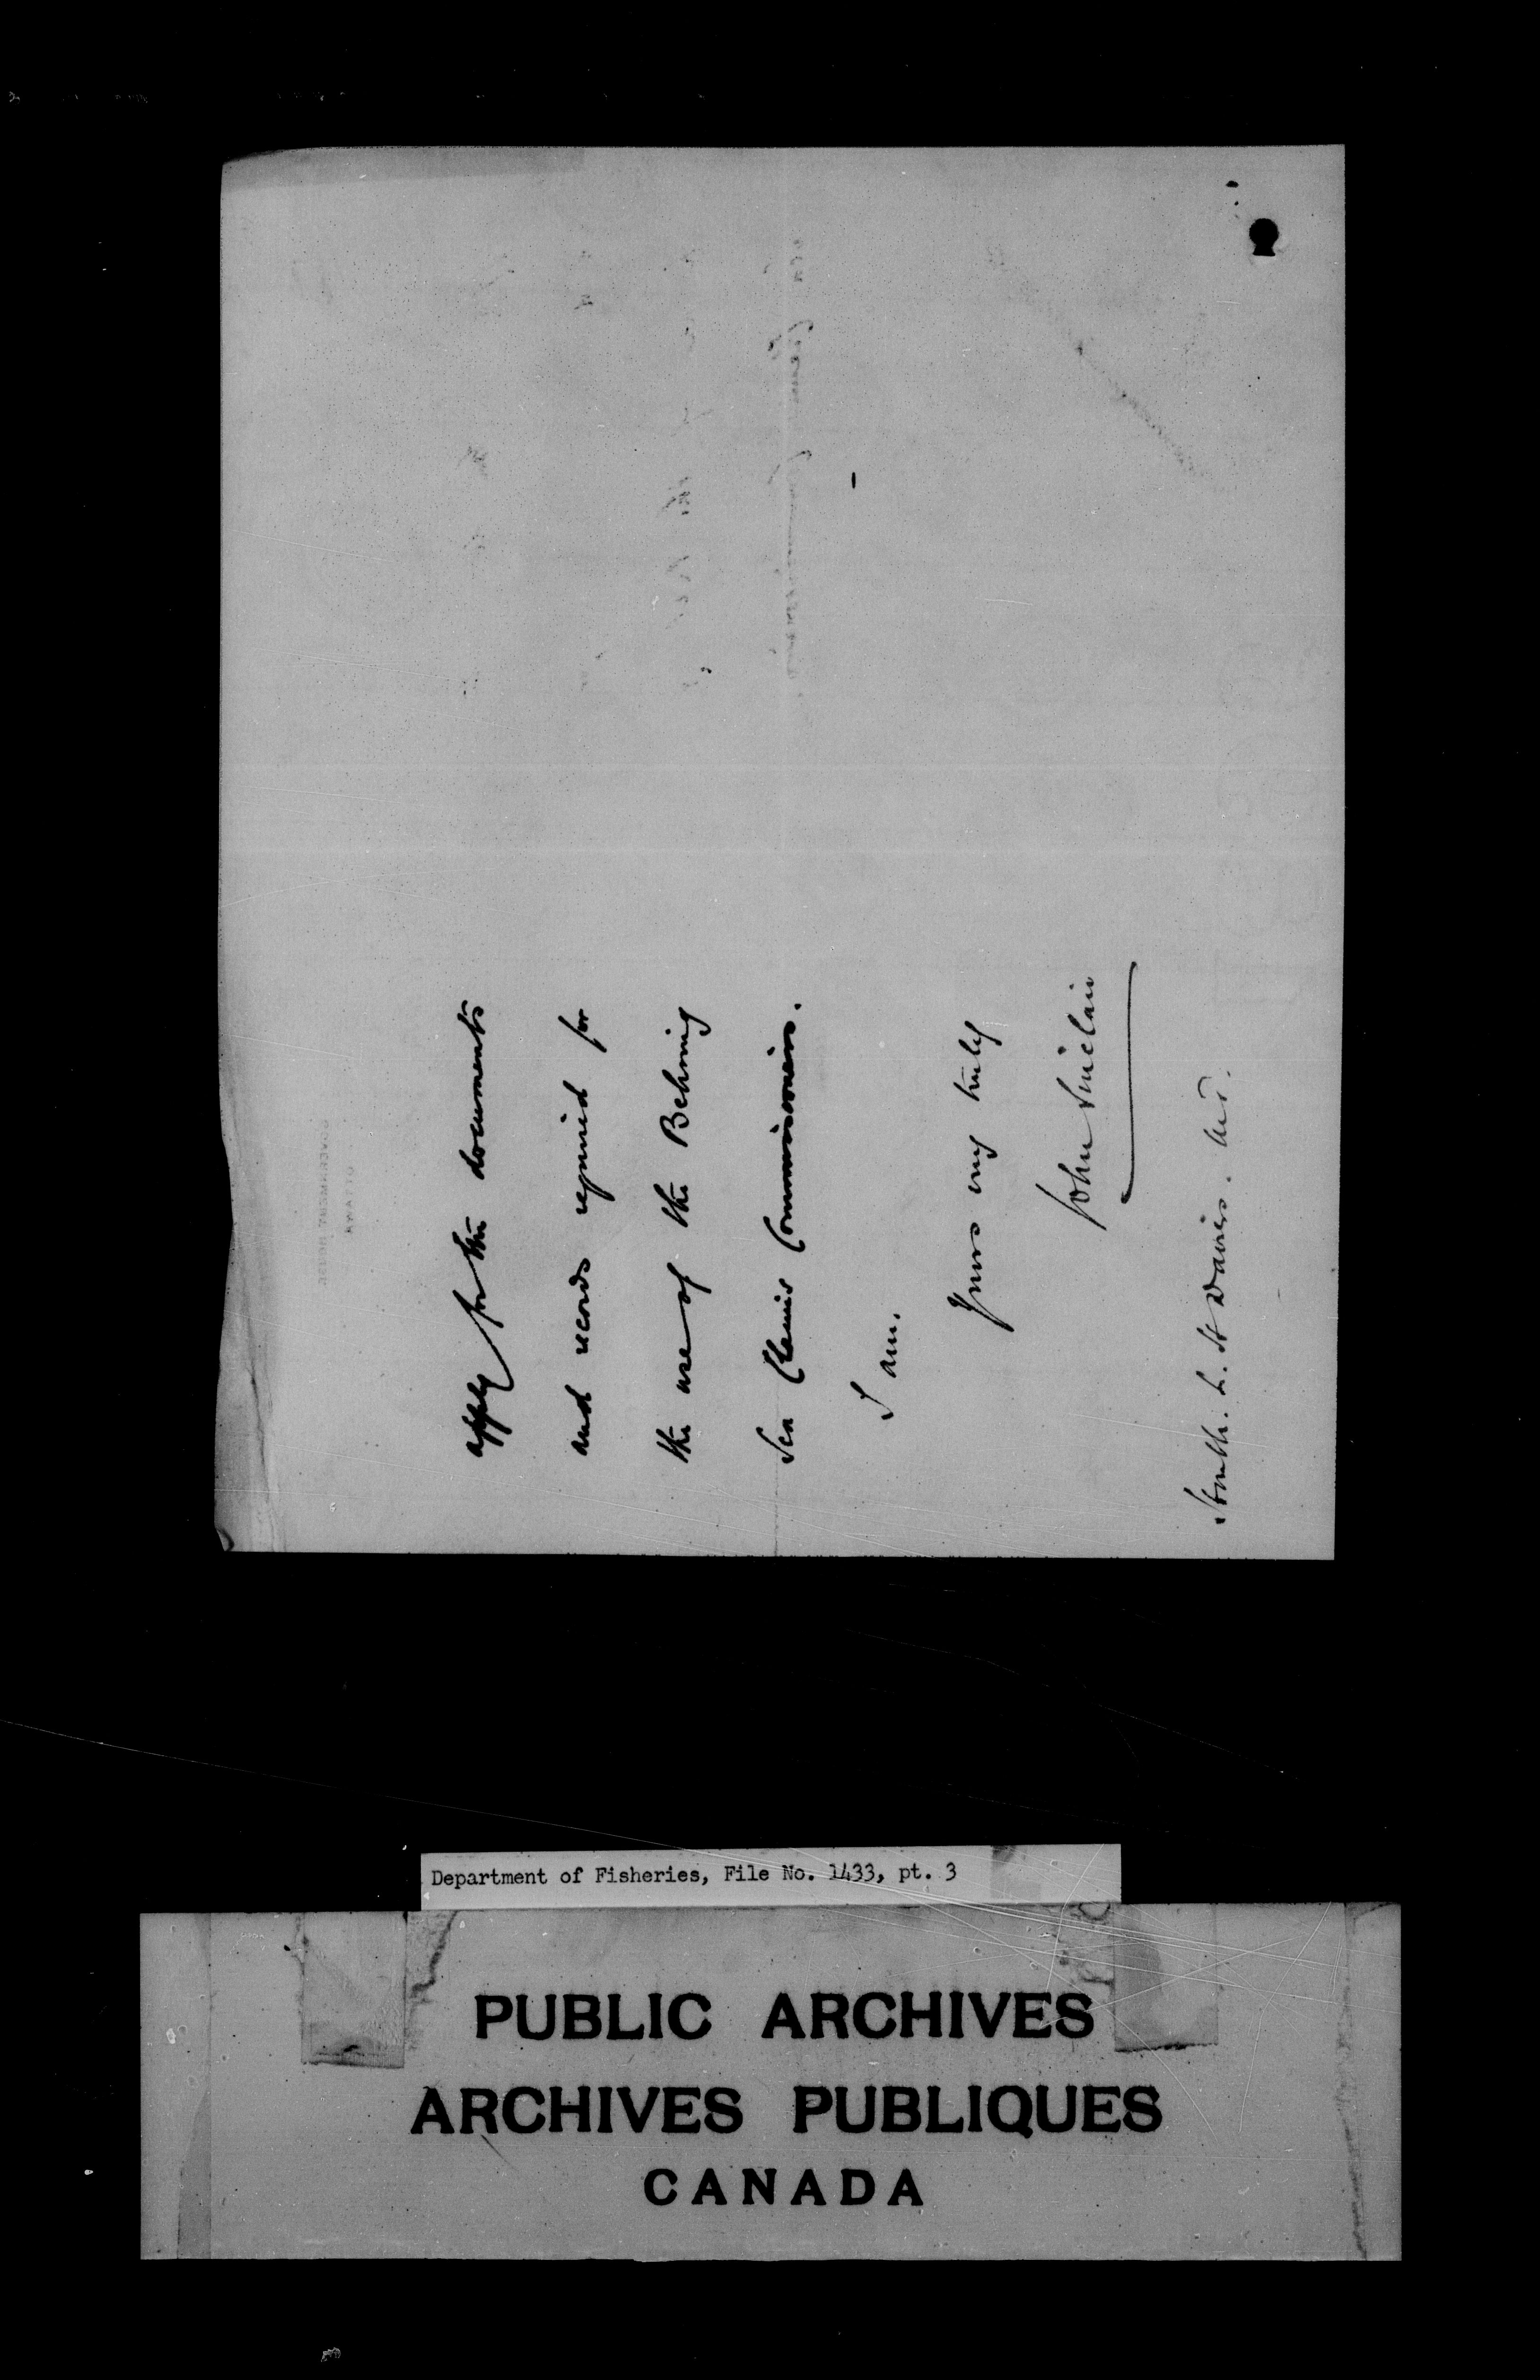 apply for the documents
and records required for
the use of the Behring
Sea Claims Commissioners.
I am.
Yours very truly
John Sinclair
L. H. Davies.
GOVERNMENT HOUSE
OTTAWA
Department of Fisheries, File No. 1433, pt. 3
PUBLIC ARCHIVES
ARCHIVES PUBLIQUES
CANADA